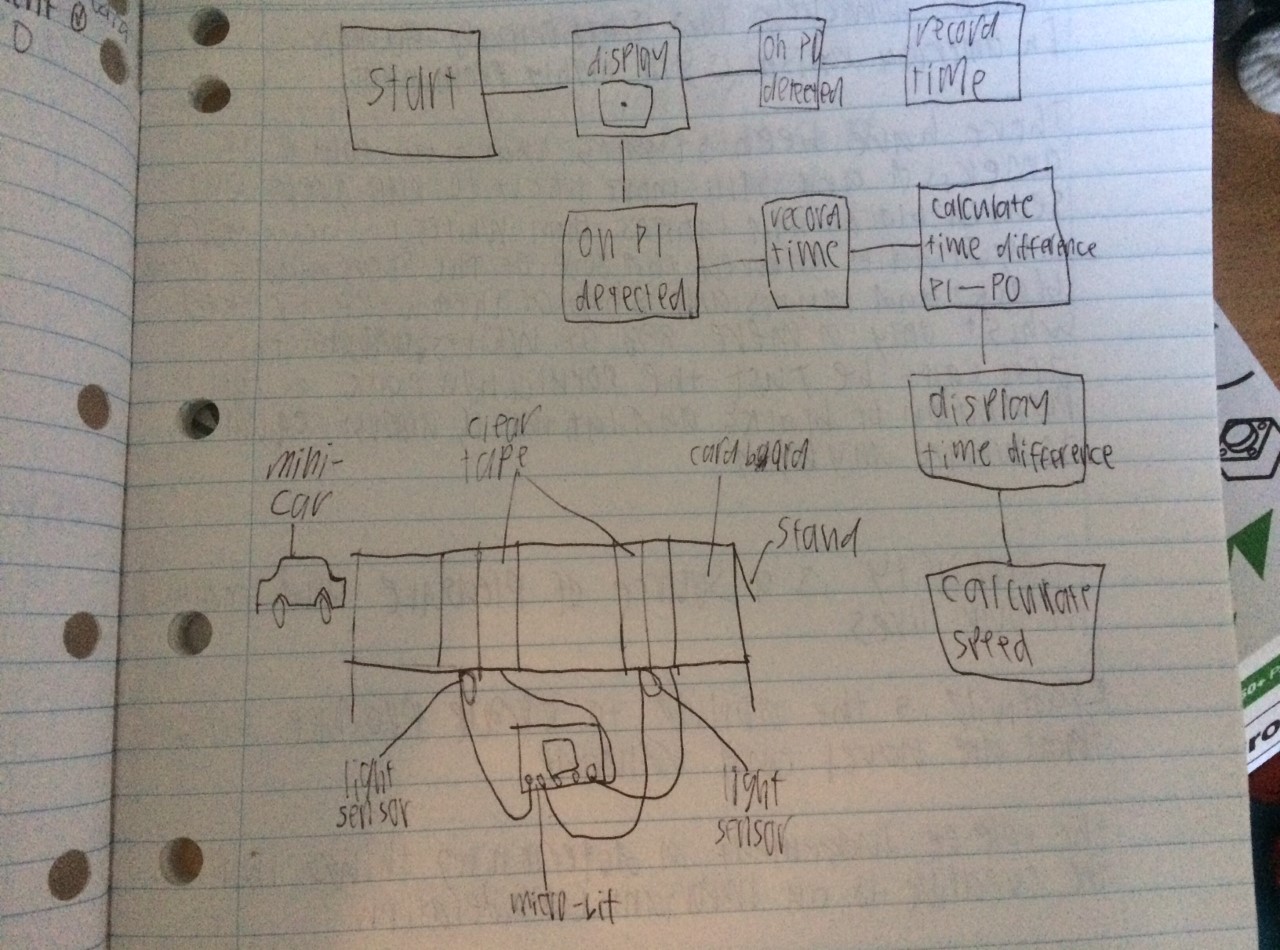 start
display
on P0
detected
record
time
on P1
detected
record
time
calculate
time difference
P1-P0
display
time difference
calculate
speed
mini-
car
clear
tape
cardboard
stand
light
sensor
light
sensor
micro-bit